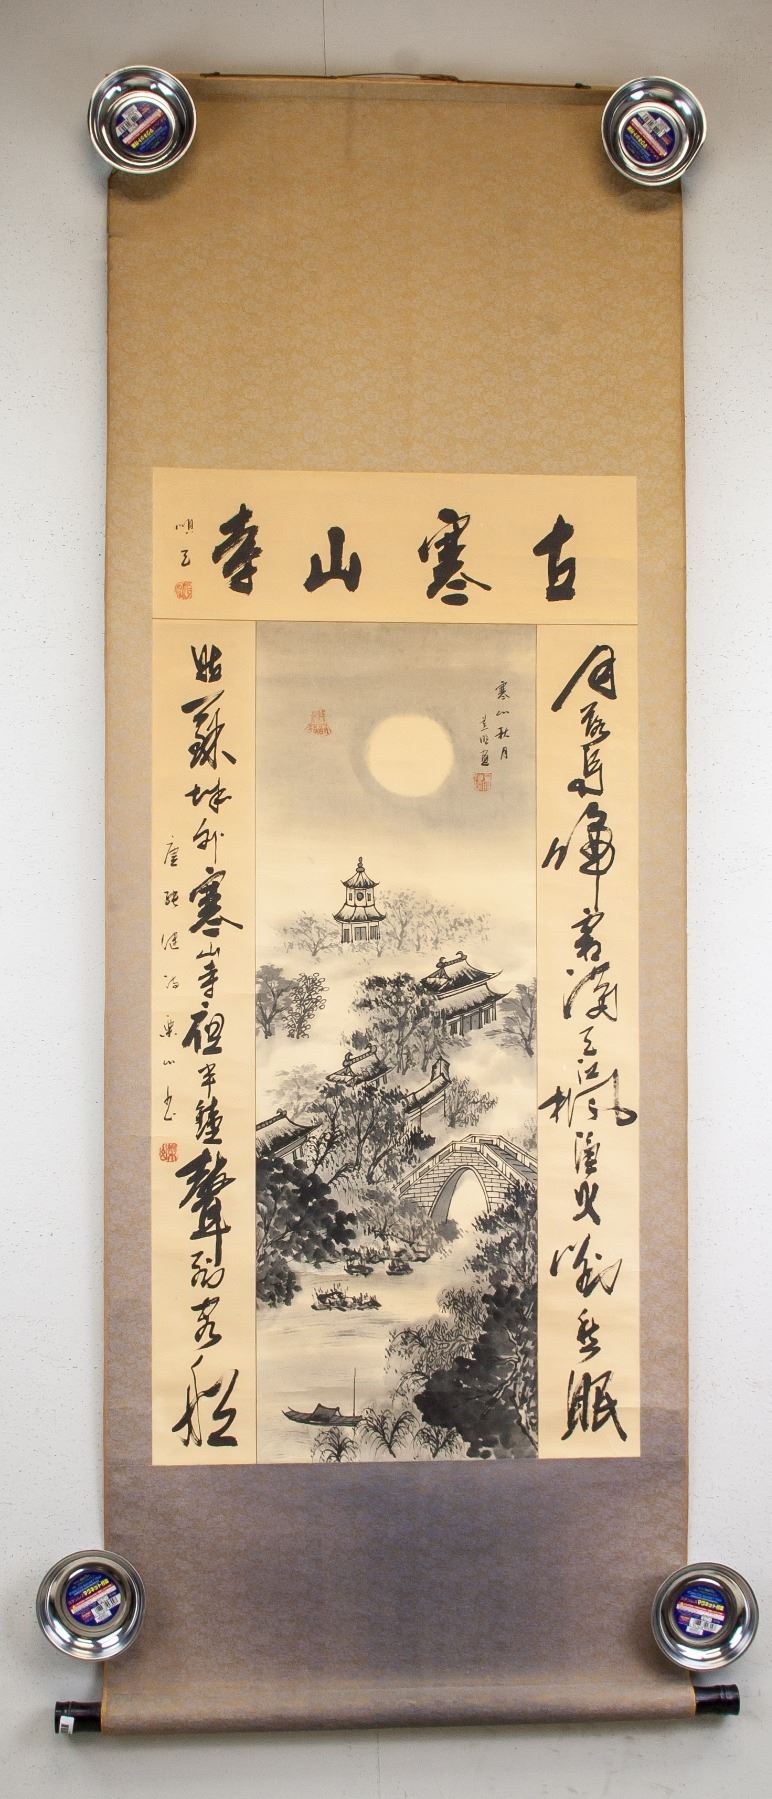 古寒山寺
月落烏啼霜滿天江楓漁火對愁眠
寒山秋月
姑蘇城外寒山寺夜半鐘聲到客船
唐張継詩